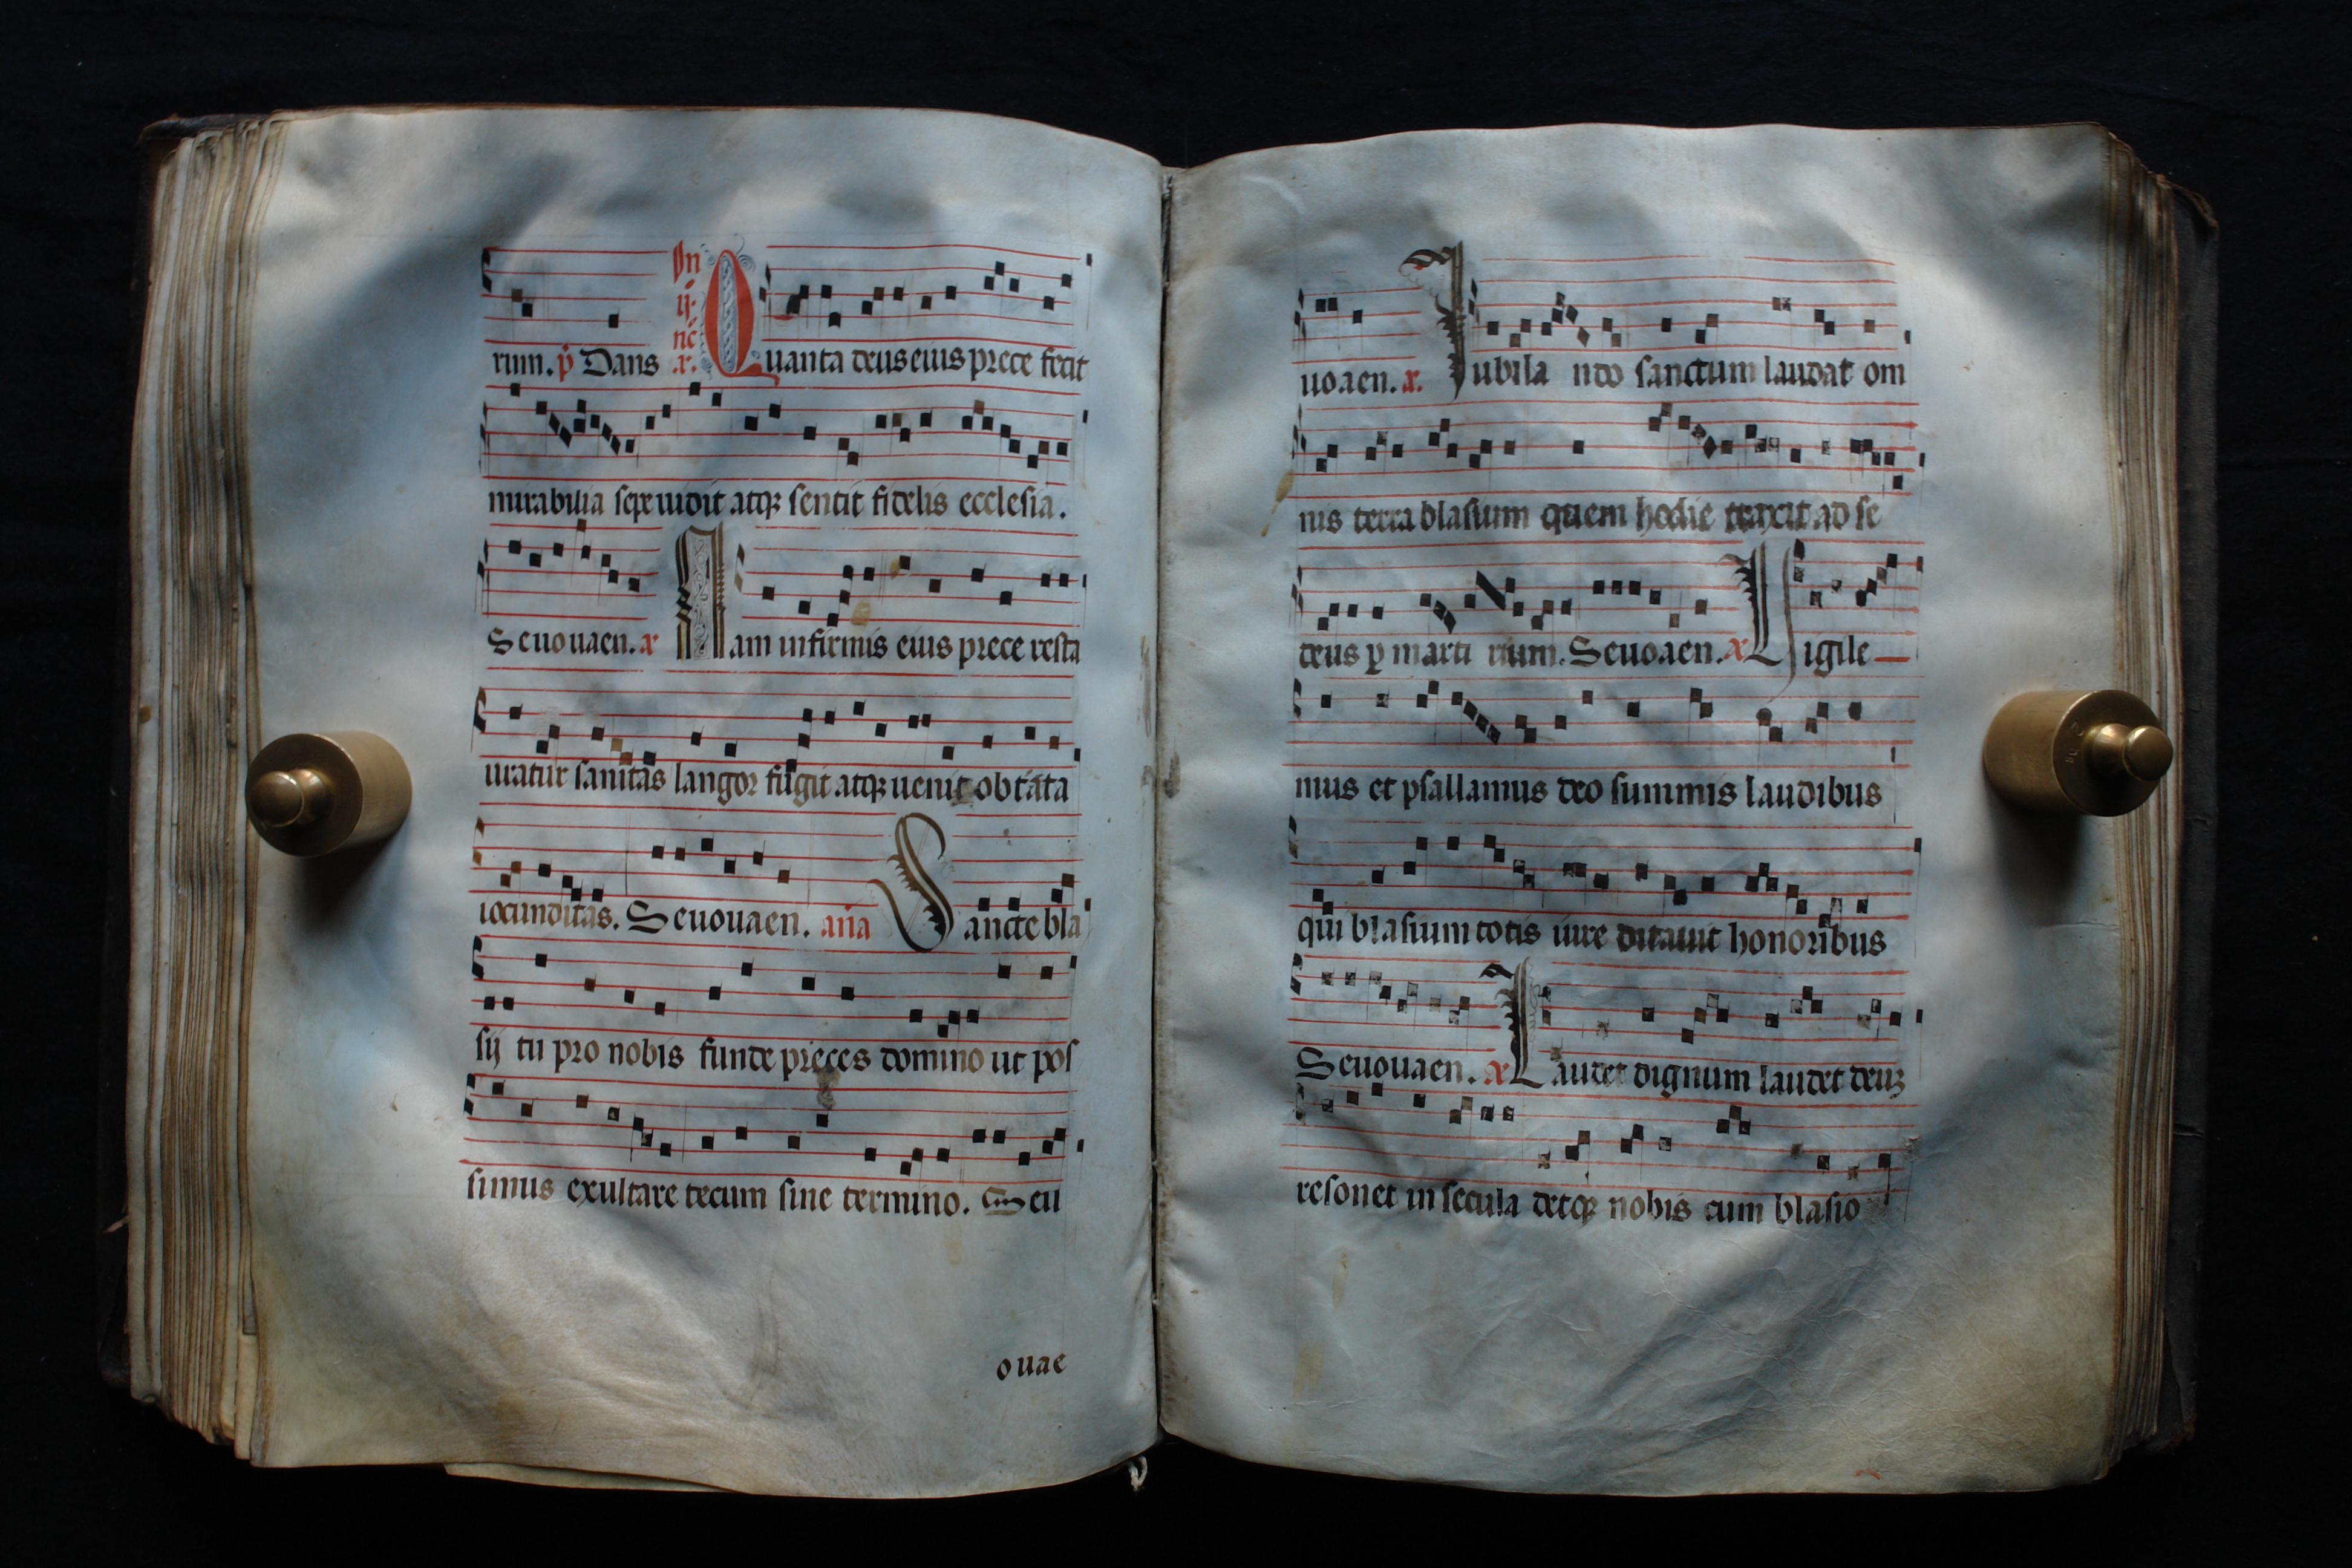 rium. p̄ Dans In ij. nc̄ x. Quanta deus eius prece fecit
mirabilia sepe uidit atq; sentit fidelis ecclesia.
Seuouaen. x Iam infirmis eius prece resta
uratur sanitas langor fugit atq; uenit obtata
iocunditas. Seuouaen. aña Sancte bla
sij tu pro nobis funde preces domino ut pos
simus exultare tecum sine termino. Seu
ouae
uoaen. x. Iubila ndo sanctum laudat om
nis terra blasium quem hodie traxit ad se
deus p marti rium. Seuoaen. x Uigile
mus et psallamus deo summis laudibus
qui blasium totis iure ditauit honoribus
Seuouaen. x Laudet dignum laudet deus
resonet in secula detq; nobis cum blasio